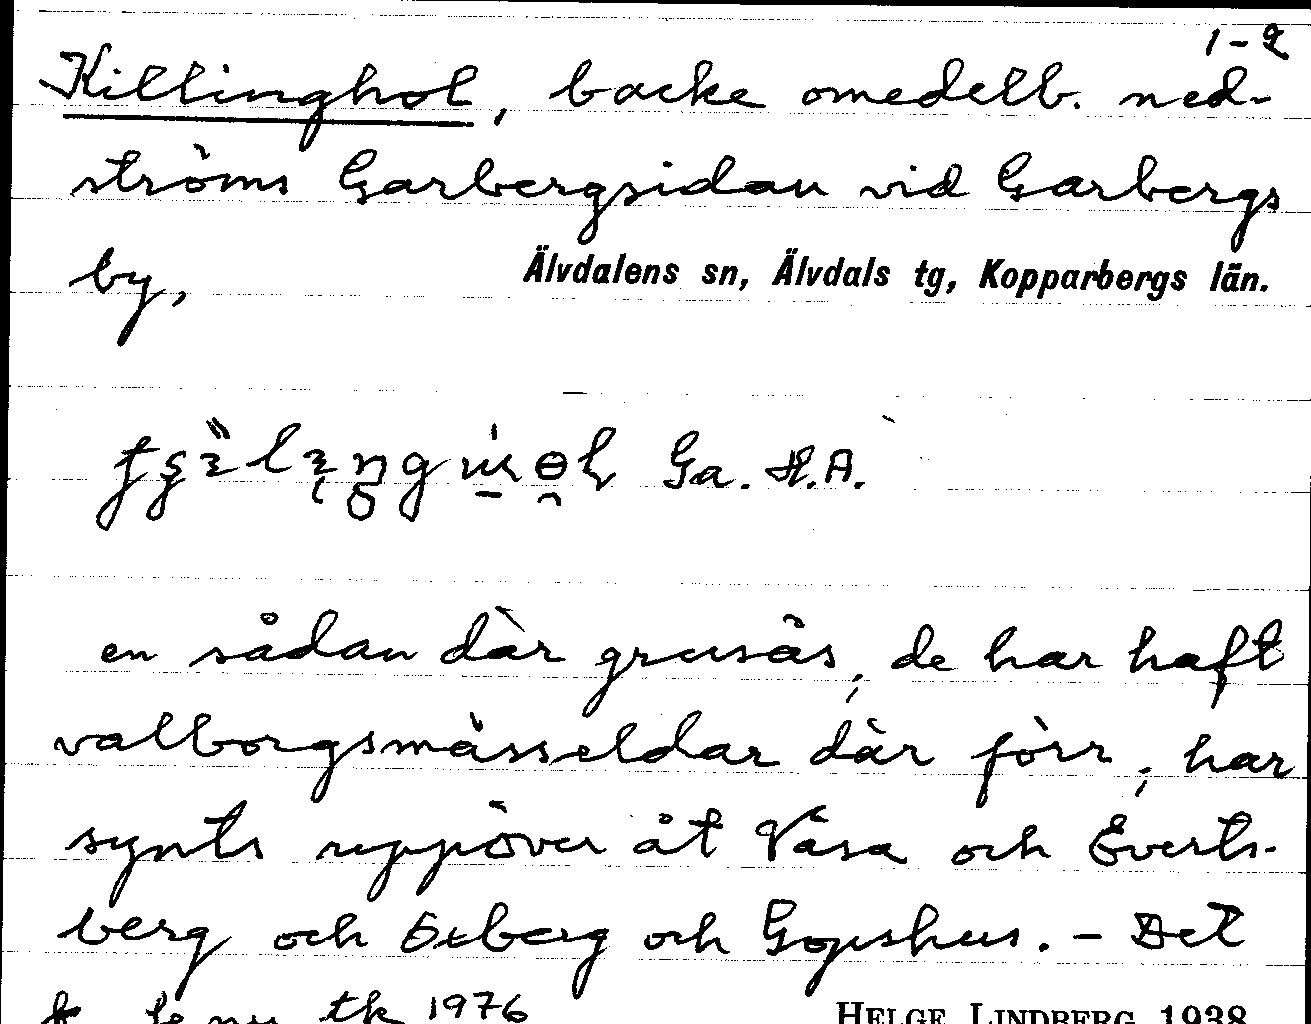 1-2
Killinghol, backe omedelb. ned-
ströms Garbergsidan vid Garbergs
by, Älvdalens sn, Älvdals tg, Kopparbergs län.
Ga. H.A.
en sådan där grusås, de har haft
valborgsmässeldar där förr, har
synts uppöver åt Våsa och Everts-
berg och Oxberg och Gopshus. - Det
tk 1976 HELGE LINDBERG 1938